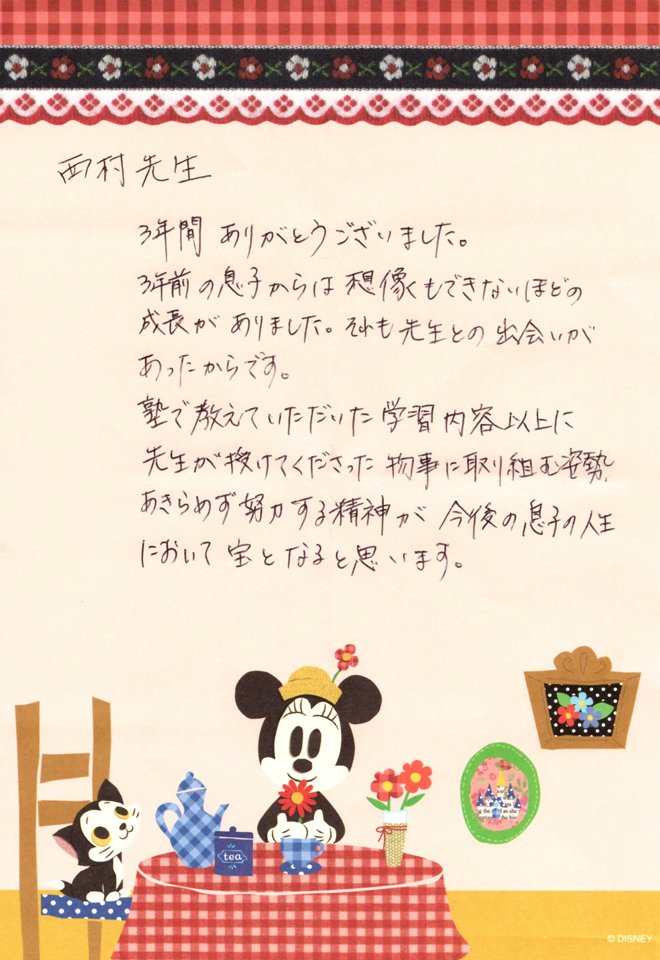 西村先生
3年間 ありがとうございました。
3年前の息子からは 想像もできないほどの
成長が ありました。それも 先生との 出会いが
あったからです。
塾で教えていただいた 学習内容以上に
先生が授けてくださった 物事に取り組む姿勢、
あきらめず努力する精神が 今後の息子の人生
において 宝と なると思います。
tea
© DISNEY